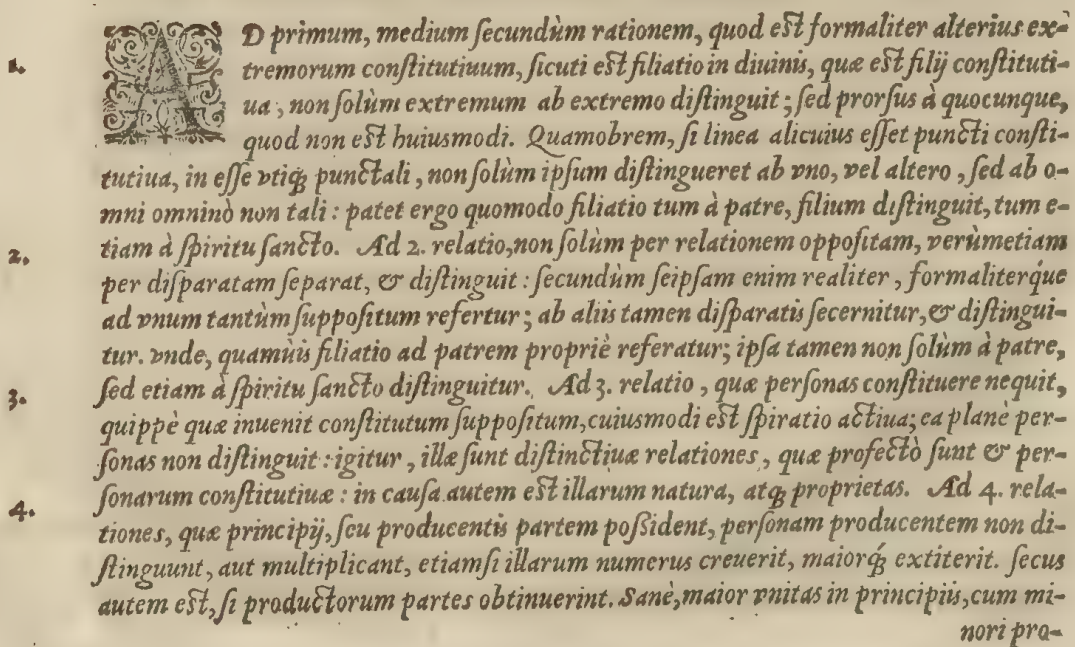 AD primum, medium ſecundùm rationem, quod eſt formaliter alterius ex-
1. tremorum conſtitutiuum, ſicuti eſt filiatio in diuinis, quæ eſt filij conſtituti-
ua, non ſolùm extremum ab extremo diſtinguit; ſed prorſus à quocunque,
quod non eſt huiuſmodi. Quamobrem, ſi linea alicuius eſſet puncti conſti-
tutiua, in eſſe vtiqꝫ punctali, non ſolùm ipſum diſtingueret ab vno, vel altero, ſed ab o-
mni omninò non tali: patet ergo quomodo filiatio tum à patre, filium diſtinguit, tum e-
2. tiam à ſpiritu ſancto. Ad 2. relatio, non ſolùm per relationem oppoſitam, verùmetiam
per diſparatam ſeparat, & diſtinguit: ſecundùm ſeipſam enim realiter, formaliterq́ue
ad vnum tantùm ſuppoſitum refertur; ab aliis tamen diſparatis ſecernitur, & diſtingui-
tur. vnde, quamùis filiatio ad patrem propriè referatur; ipſa tamen non ſolùm à patre,
3. ſed etiam à ſpiritu ſancto diſtinguitur. Ad 3. relatio, quæ perſonas conſtituere nequit,
quippè quæ inuenit conſtitutum ſuppoſitum, cuiuſmodi eſt ſpiratio actiua; ea planè per-
ſonas non diſtinguit: igitur, illæ ſunt diſtinctiuæ relationes, quæ profectò ſunt & per-
4. ſonarum conſtitutiuæ: in cauſa autem eſt illarum natura, atqꝫ proprietas. Ad 4. rela-
tiones, quæ principij, ſeu producentis partem poſsident, perſonam producentem non di-
ſtinguunt, aut multiplicant, etiamſi illarum numerus creuerit, maiorq́ꝫ extiterit. ſecus
autem eſt, ſi productorum partes obtinuerint. Sanè, maior vnitas in principiis, cum mi-
nori pro-